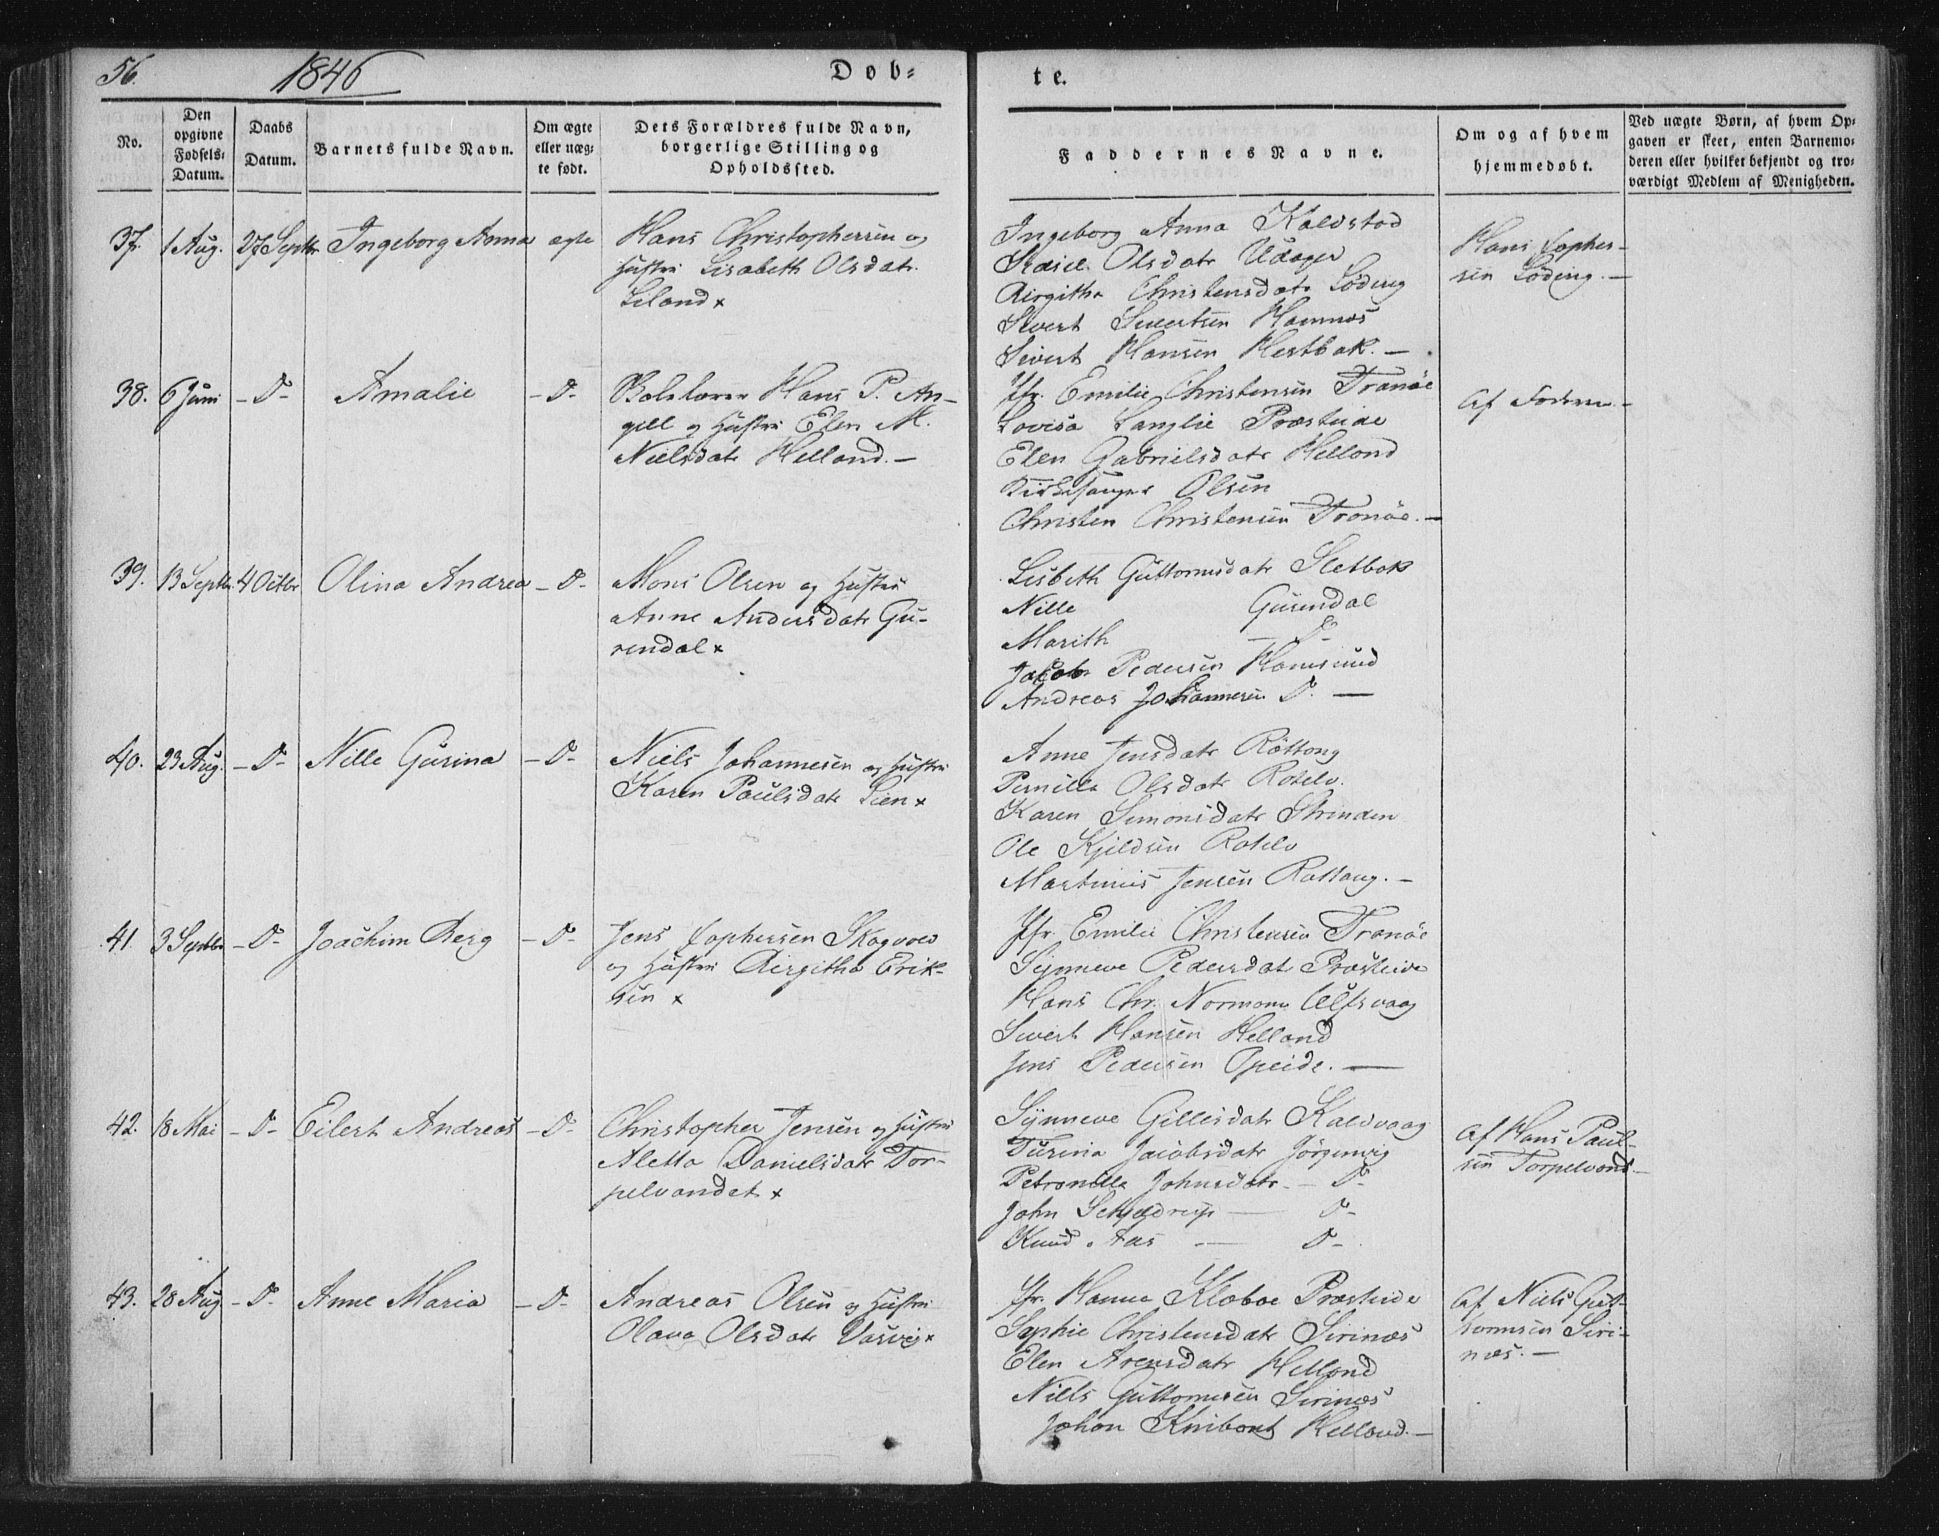 56. 1846 Døb-
te.
No.
Den opgivne Fødsels-Datum.
Daabs Datum.
Barnets fulde Navn.
Om ægte eller uæg-te født.
Dets Forældres fulde Navn, borgerlige Stilling og Opholdssted.
Faddernes Navne.
Om og af hvem hjemmedøbt.
Ved uægte Børn, af hvem Op-gaven er skeet, enten Barnemo-deren eller hvilket bekjendt og tro-værdigt Medlem af Menigheden.
37. 1 Aug. 27 Septbr Ingeborg Anna ægte
Hans Christophersen og
Hustru Lisabeth Olsdatr
Leland x
Ingeborg Anna Kaldstad
Olsdatr
Birgitha Christensdatr Løding
Sivert Sivertsen Hamnes
Sivert Hansen Hestbak. —
Hans
sen Løding. —
38. 6 Juni - D- Amalie - D-
Hans P. An-
gell og Hustru Elen M.
Nielsdatr Helland. —
Jfr. Emilie Christensen Tranøe
Lovisa Langlie Præsteide
Elen Gabrielsdatr Helland
Kirkesanger Olsen
Christen Christensen Tranøe. —
Af Faderen -
39. 13 Septbr 4 Octbr Olina Andrea - D-
Mons Olsen og Hustru
Anne Andersdatr Gu-
rendal x
Lisbeth Guttormsdatr Sletbak
Nille Gurendal
Marith — D-
Jakob Pedersen Hamsund
Andreas Johannesen D. —
40. 23 Aug. - D- Nille Gurina - D-
Niels Johannesen og Hustru
Karen Paulsdatr Lien x
Anne Jensdatr Rottang
Pernille Olsdatr Rotelv.
Karen Simonsdatr Strinden
Ole Kjeldsen Rotelv
Martinus Jensen Rottang. —
41. 3 Septbr - D- Joachim Berg - D-
Jens Skogvold
og Hustru Birgitha Erik-
sen x
Jfr. Emilie Christensen Tranøe
Synneve Pedersdat Præsteide
Hans Chr. Normann Ulfsvaag
Sivert Hansen Helland
Jens Pedersen Opeide. —
42. 18 Mai - D- Eilert Andreas - D-
Christopher Jensen og Hustru
Aletta Danielsdatr Tor-
pelvandet x
Synneve Gillesdatr Kaldvaag
Turina Jacobsdatr Jørgenvig
Petronille Johnsdatr - D-
John Schjeldrup — D-
Knud Aas — D-
Af Hans Paul-
sen Torpelvand. —
43. 28 Aug - D- Anne Maria - D-
Andreas Olsen og Hustru
Olava Olsdatr Vasvig x
Jfr. Hanna Klæboe Præsteide
Sophie Christensdatr Sirinæs
Elen Arensdatr Helland
Niels Guttormsen Sirinæs
Johan Knibont Helland. —
Af Niels Gut-
tormsen Siri-
næs. —